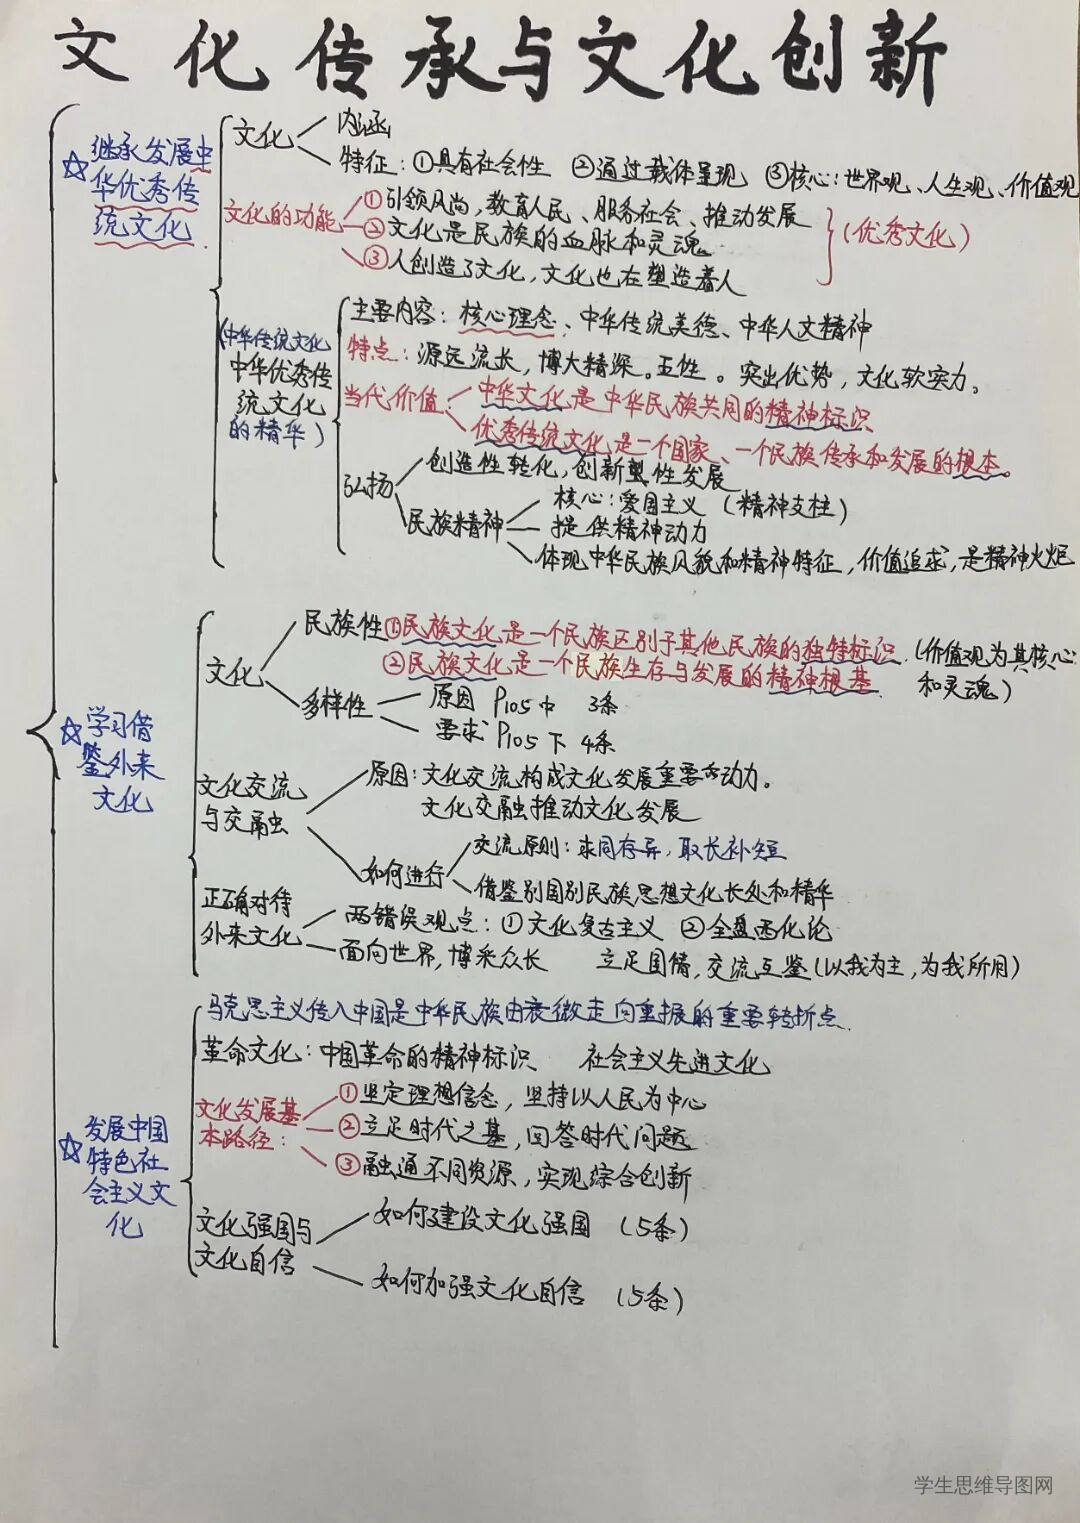 文化传承与文化创新
☆继承发展中
华优秀传
统文化
文化
内涵
特征：①具有社会性 ②通过载体呈现 ③核心：世界观、人生观、价值观
文化的功能
①引领风尚，教育人民、服务社会、推动发展
②文化是民族的血脉和灵魂
③人创造了文化，文化也在塑造着人
（优秀文化）
（中华传统文化
中华优秀传
统文化
的精华）
主要内容：核心理念、中华传统美德、中华人文精神
特点：源远流长，博大精深。五性。突出优势，文化软实力。
当代价值：
中华文化是中华民族共同的精神标识
优秀传统文化是一个国家、一个民族传承和发展的根本。
弘扬
创造性转化，创新型性发展
民族精神
核心：爱国主义（精神支柱）
提供精神动力
体现中华民族风貌和精神特征，价值追求，是精神火炬
☆学习借
鉴外来
文化
文化
民族性
①民族文化是一个民族区别于其他民族的独特标识（价值观为其核心
②民族文化是一个民族生存与发展的精神根基
和灵魂）
多样性
原因 P105中 3条
要求 P105下 4条
文化交流
与交融
原因：文化交流构成文化发展重要动力。
文化交融推动文化发展
如何进行
交流原则：求同存异，取长补短
借鉴别国别民族思想文化长处和精华
正确对待
外来文化
两错误观点：①文化复古主义 ②全盘西化论
面向世界，博采众长 立足国情，交流互鉴（以我为主，为我所用）
☆发展中国
特色社
会主义文
化
马克思主义传入中国是中华民族由衰微走向重振的重要转折点
革命文化：中国革命的精神标识 社会主义先进文化
文化发展基
本路径：
①坚定理想信念，坚持以人民为中心
②立足时代之基，回答时代问题
③融通不同资源，实现综合创新
文化强国与
文化自信
如何建设文化强国（5条）
如何加强文化自信（5条）
学生思维导图网